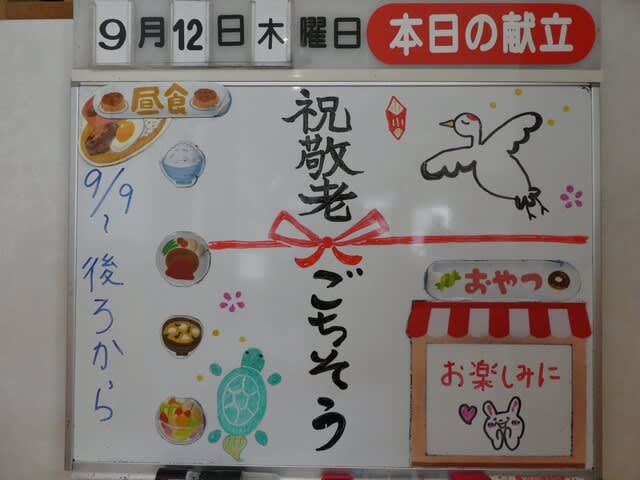 9月12日木曜日
本日の献立
昼食
祝敬老
ごちそう
9/9~
後ろから
おやつ
お楽しみに